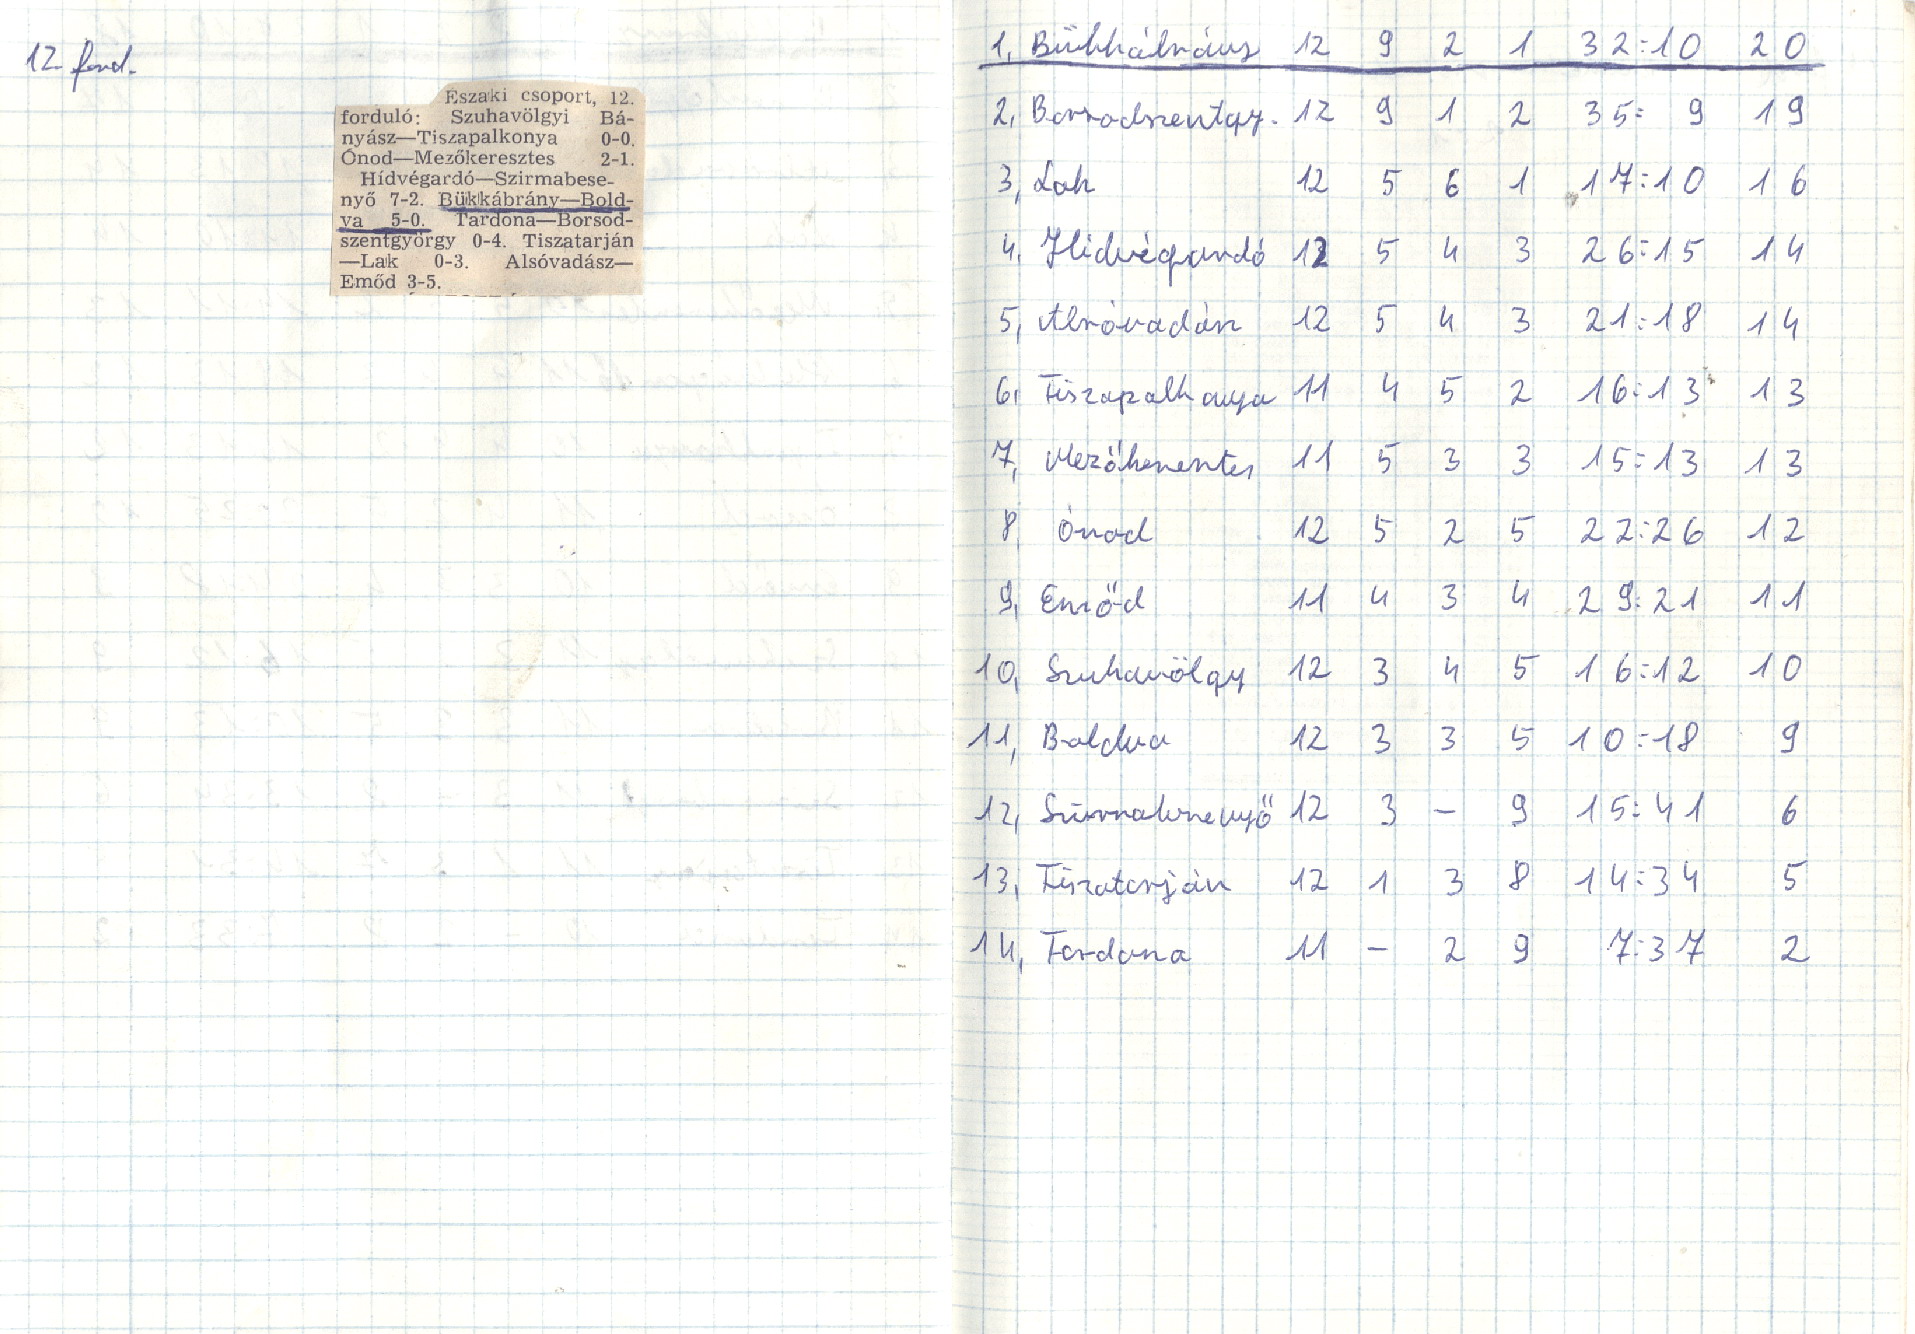 12. ford.
Északi csoport, 12.
forduló: Szuhavölgyi Bá-
nyász—Tiszapalkonya 0-0.
Ónod—Mezőkeresztes 2-1.
Hídvégardó—Szirmabese-
nyő 7-2. Bükkábrány—Bold-
va 5-0. Tardona—Borsod-
szentgyörgy 0-4. Tiszatarján
—Lak 0-3. Alsóvadász—
Emőd 3-5.
1, Bükkábrány 12 9 2 1 32:10 20
2, Borsodszentgy. 12 9 1 2 35: 9 19
3, Lak 12 5 6 1 17:10 16
4, Hidvégardó 12 5 4 3 26:15 14
5, Alsóvadász 12 5 4 3 21:18 14
6, Tiszapalkonya 11 4 5 2 16:13 13
7, Mezőkeresztes 11 5 3 3 15:13 13
8, Ónod 12 5 2 5 22:26 12
9, Emőd 11 4 3 4 29:21 11
10, Szuhavölgy 12 3 4 5 16:12 10
11, Boldva 12 3 3 5 10:18 9
12, Szirmabesenyő 12 3 – 9 15:41 6
13, Tiszatarján 12 1 3 8 14:34 5
14, Tardona 11 – 2 9 7:37 2